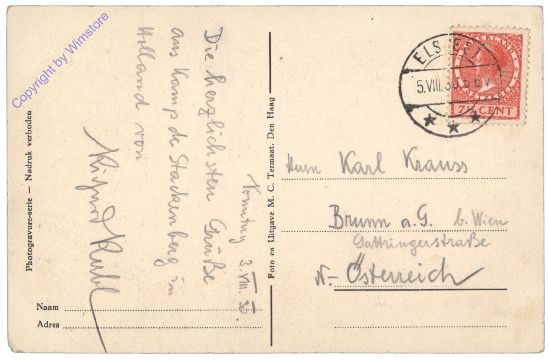 Copyright by Wimstore
Photogravure-serie — Nadruk verboden
Die herzlichsten Grüße
aus Kamp de Stackenberg in
Holland von
3. VIII. 35.
Naam
Adres
Foto en Uitgave M. C. Termaat. Den Haag
ELSPEET
5.VIII.35
7½ CENT
Herrn Karl Krauss
Brunn a. G. b. Wien
Gattringerstraße
N.-Österreich